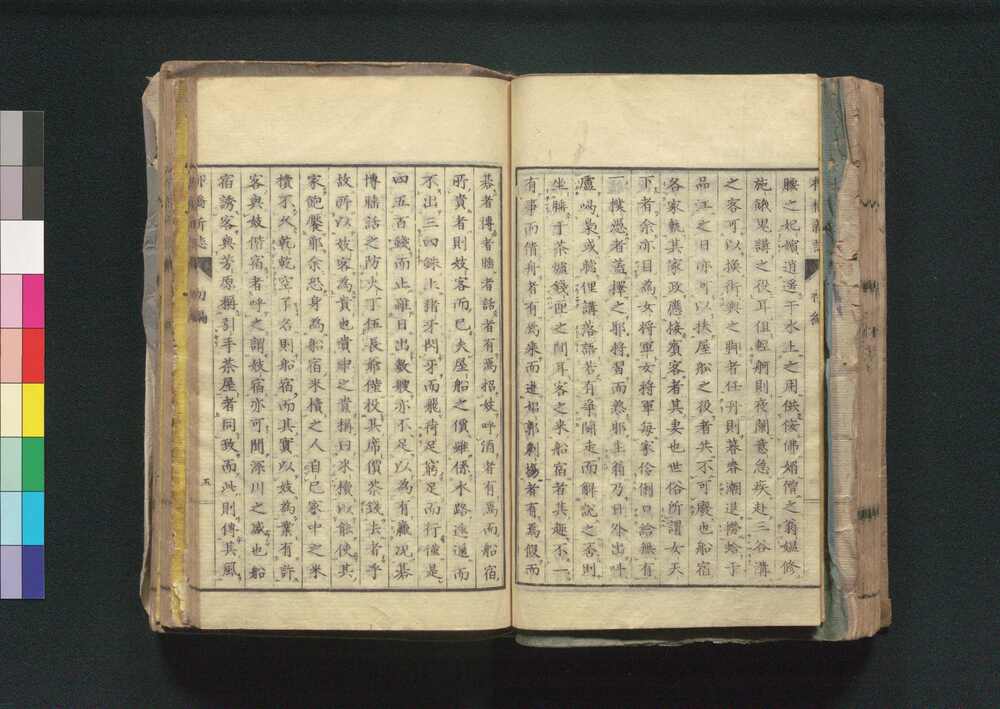 腰之妃嬪逍遥于水上之用供侫佛媚僧之翁媼修
施餓鬼講之役耳但輕舸則夜闌意急疾赴三谷溝
之客可以換街輿之輿者任刋則暮春潮退撈蛤于
品江之日亦可以扶屋舩之役者共不可廢也船宿
各家軌其家政應接賓客者其妻也世俗所謂女天
下者余亦目為女将軍女将軍毎家伶俐口給無有
一樸愚者蓋擇之耶将習而耶主翁乃日外出呼
盧喝梟或聴俚講落語若有争鬪走而解説之否則
坐睡于茶爐錢匣之間耳客之来船宿者其趣不一
有事而倩舟者有為来而迎娼郭者有焉假而
碁者博者膳者話者有焉招妓呼酒者有焉而船宿
所貴者則妓客而已夫屋船之價雖係水路遠邇而
不出三四銖止猪牙悶牙而飛荷足窮足而行僅是
四五百錢而止雖日出數艘亦不足以為有贏况碁
博膳話之防火丁伍長爺僅投其席價茶錢去者乎
故所以妓客為貴也貴中之貴稱曰米櫃以能使其
家飽饜耶余恐身為船宿米櫃之人自己家中之米
櫃不久乾乾空了名則船宿而其實以妓為業有許
客與妓偕宿者呼之謂妓宿亦可聞深川之盛也船
宿誘客與芳原稱引手茶屋者同致而此則傳其風
柳橋新誌 初編
五